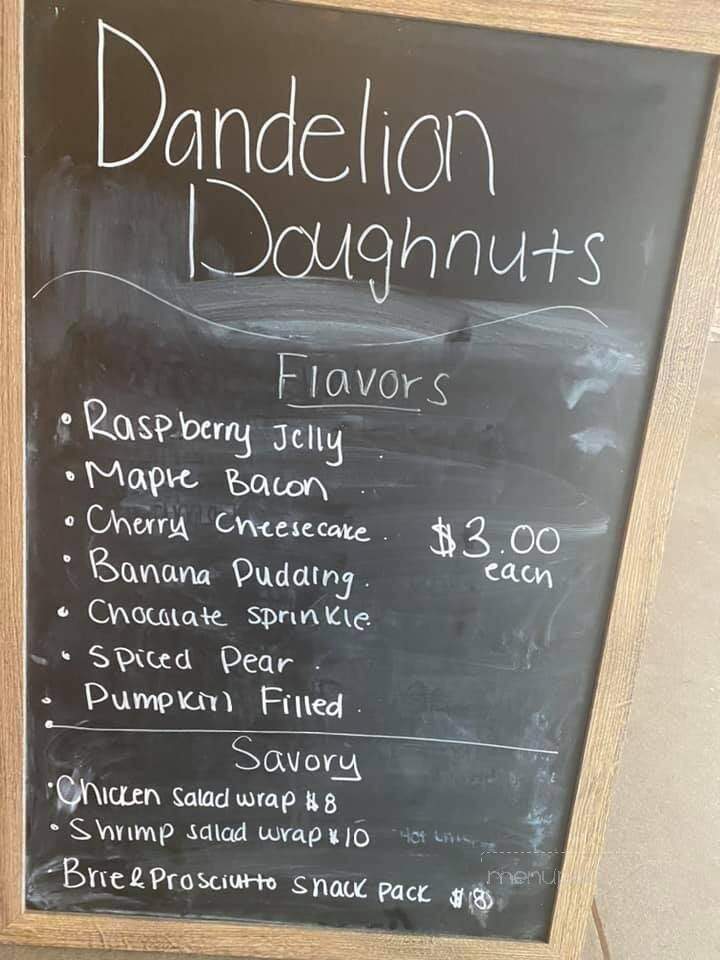 Dandelion
Doughnuts
Flavors
• Raspberry Jelly
• Maple Bacon
• Cherry Cheesecake
$3.00
each
• Banana Pudding
• Chocolate sprinkle
• Spiced Pear
• Pumpkin Filled
Savory
• Chicken salad wrap $8
• Shrimp salad wrap $10
• Brie & Prosciutto snack pack $8